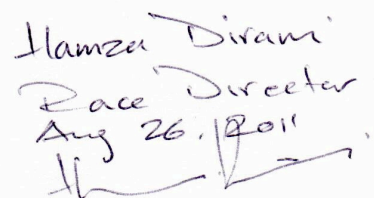 Hamza Dirami
Race Director
Aug 26. 2011